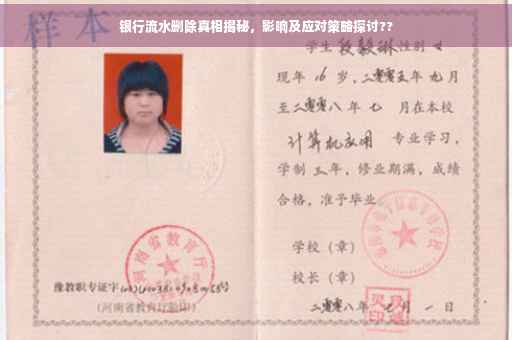 银行流水删除真相揭秘，影响及应对策略探讨??
样本
学生 段毅琳 性别 女
现年 16 岁，二零零五年 九 月
至二零零八年 七 月在本校
计算机应用 专业学习，
学制 三 年，修业期满，成绩
合格，准予毕业
学校（章）
校长（章）
二零零八年 月 一 日
河南省教育厅
豫教职专证字
(河南省教育厅验印)